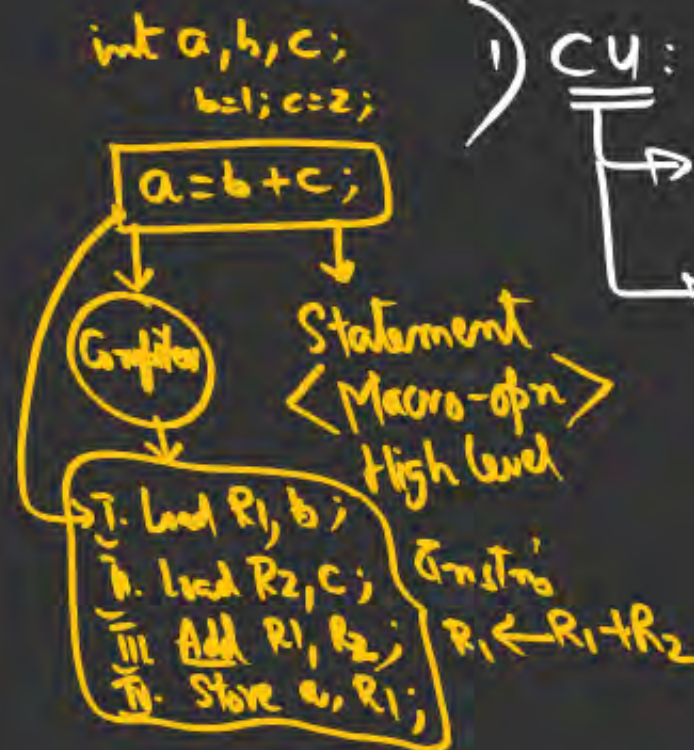 int a, b, c;
b=1; c=2;
a = b + c;
Compiler
Statement
<Macro-opn>
High level
I. Load R1, b;
II. Load R2, c;
III. Add R1, R2;
IV. Store a, R1;
Instrns
R1 ← R1 + R2
1) CU: